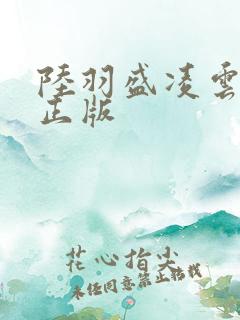 陸羽盛凌雲
正版
花心指尖
未经同意禁止转载